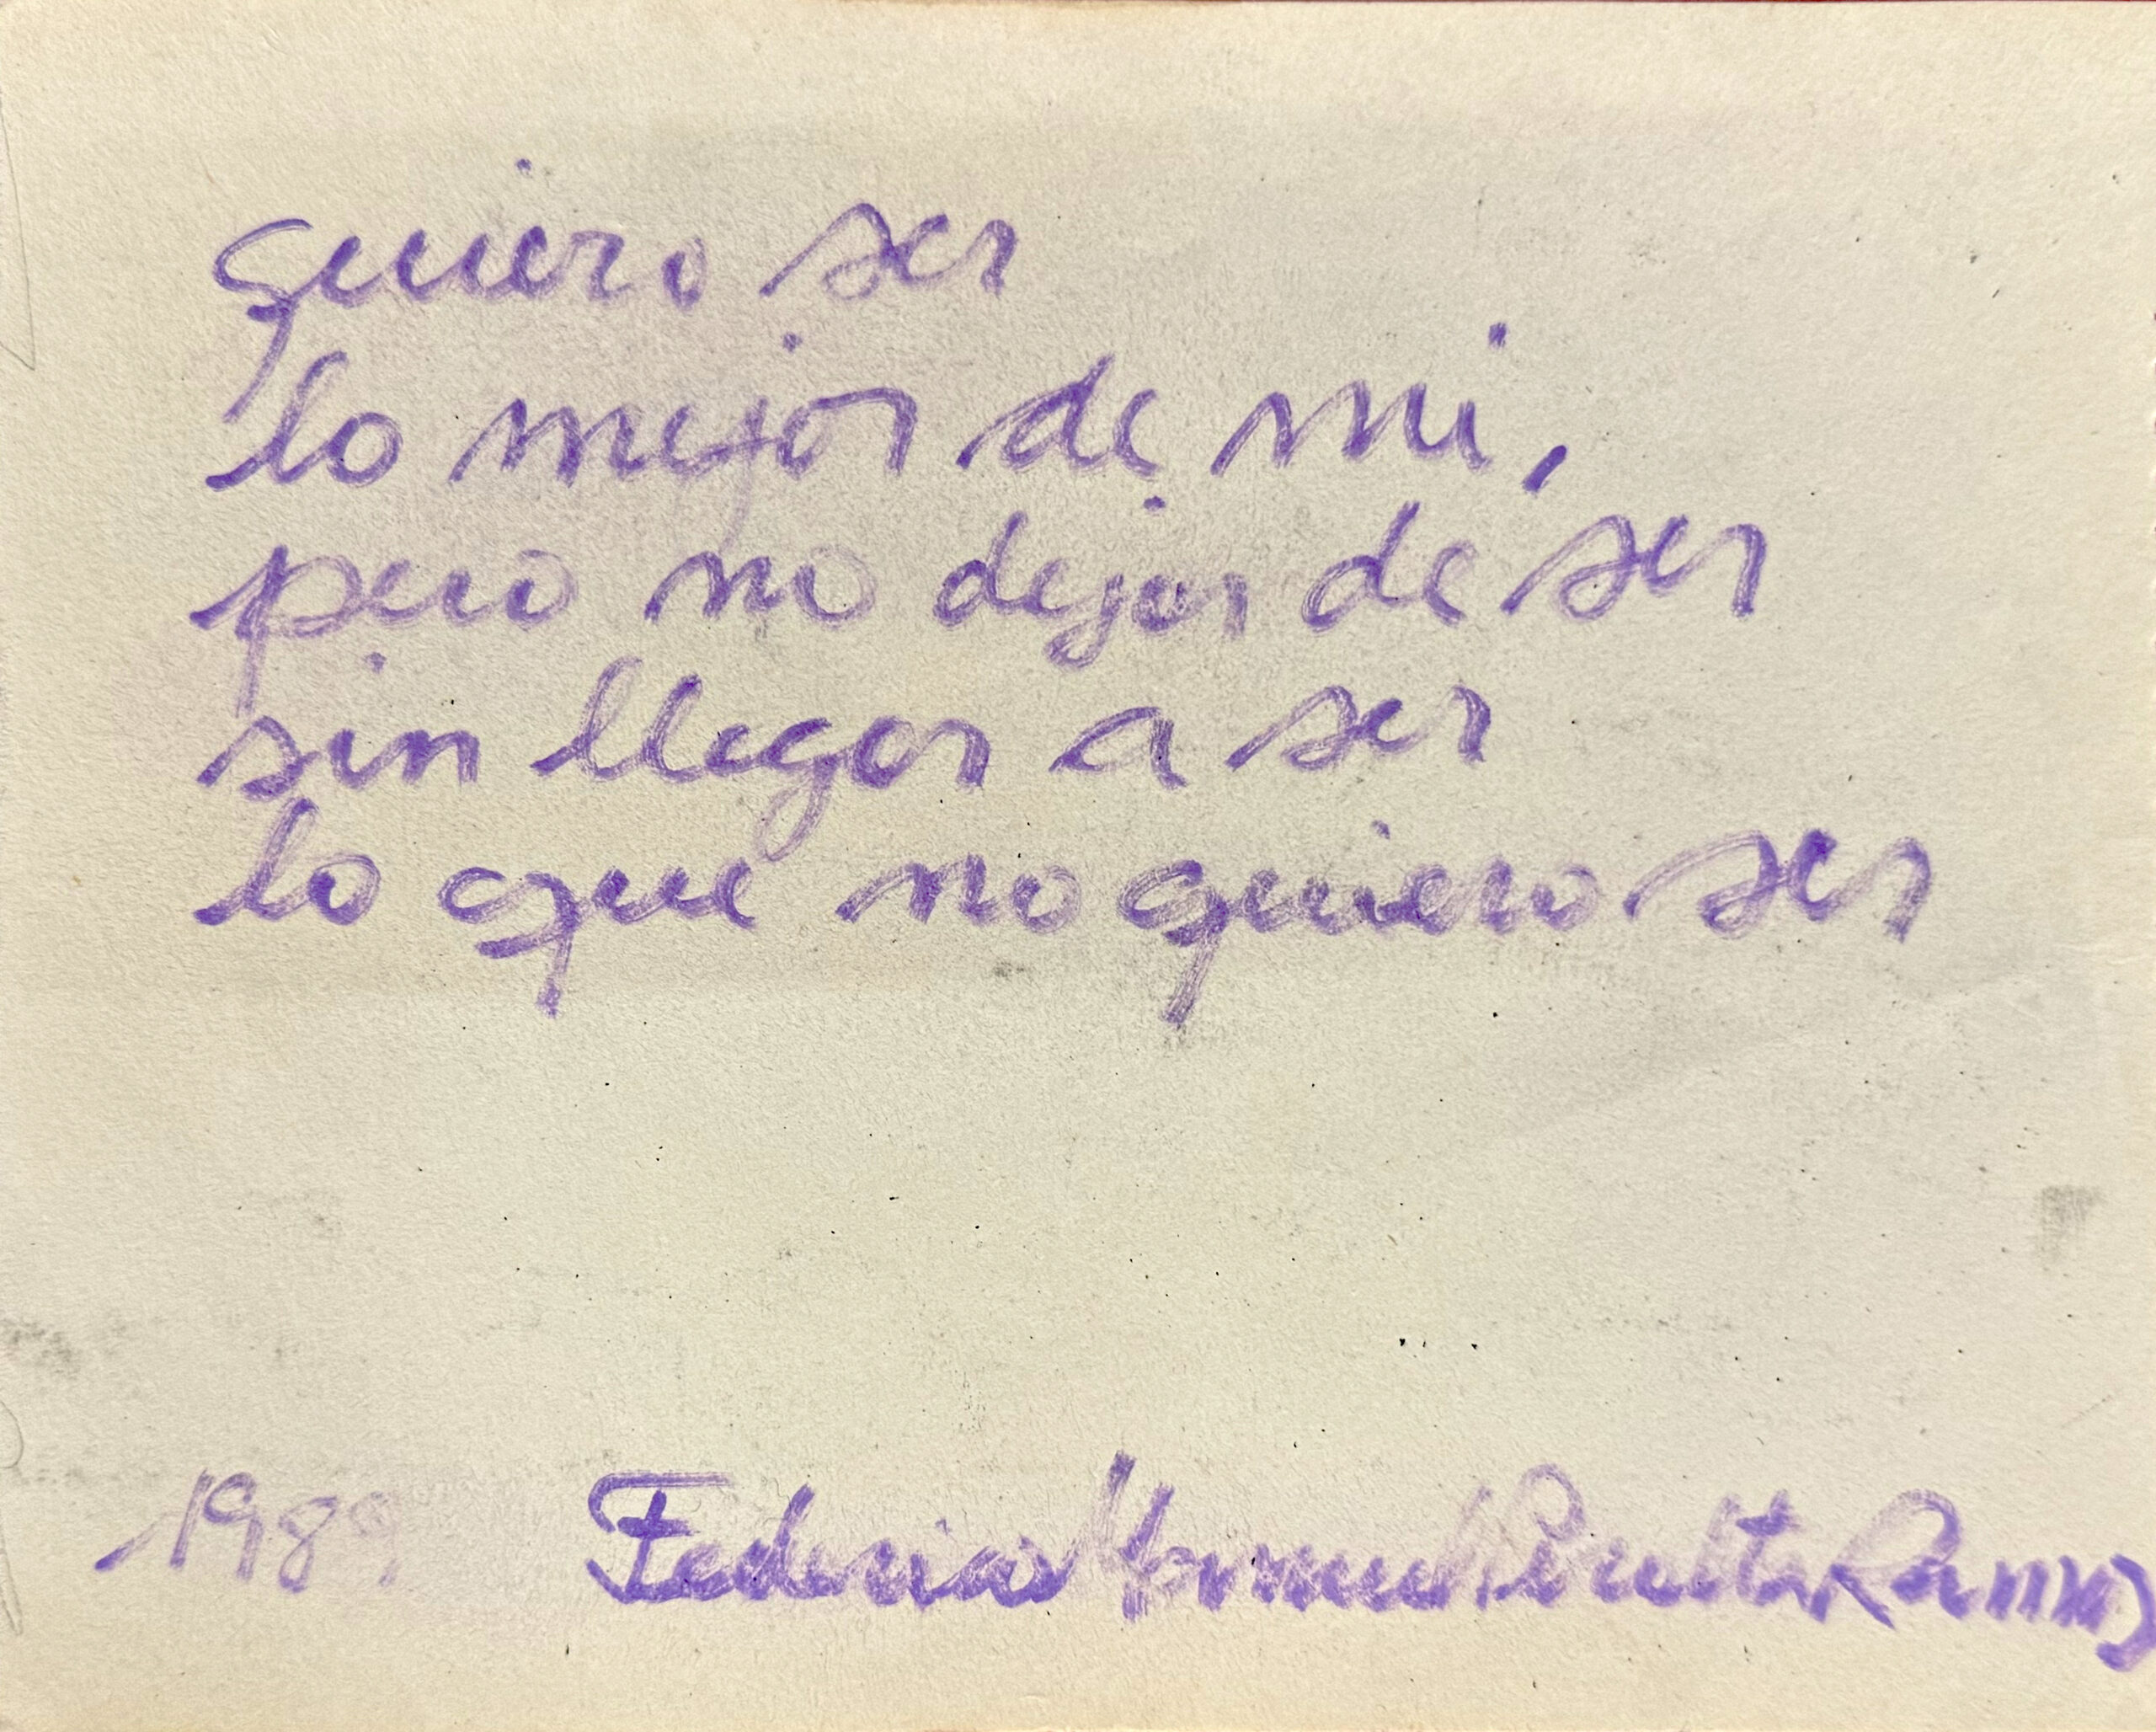 quiero ser
lo mejor de mi,
pero no dejar de ser
sin llegar a ser
lo que no quiero ser
1989 Federico Manuel Peralta Ramos